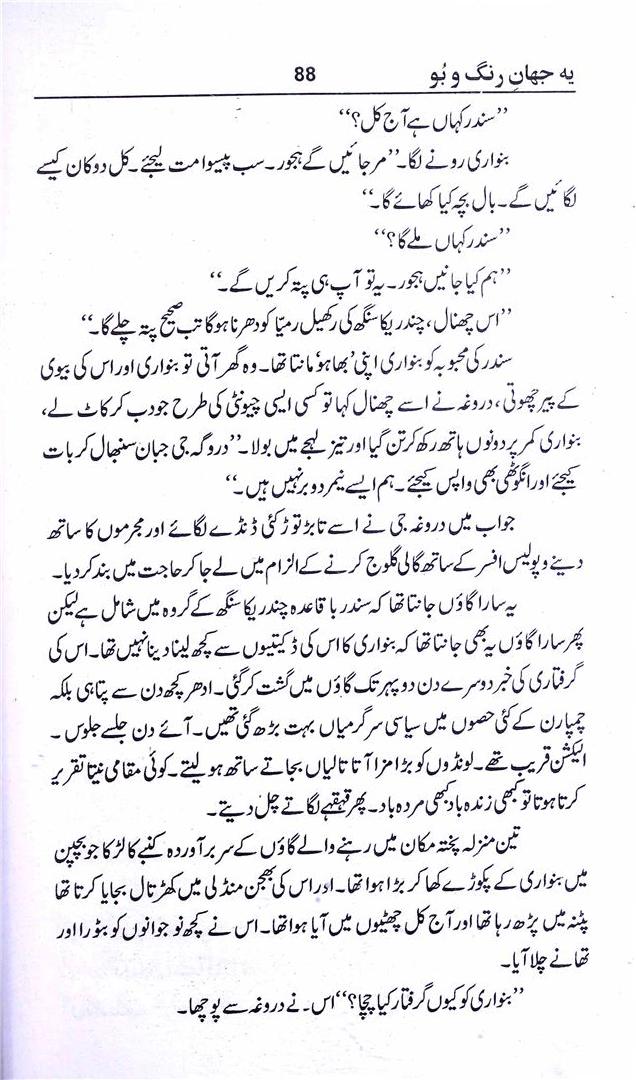 یہ جہانِ رنگ و بُو 88
”سندر کہاں ہے آج کل؟“
بنواری رونے لگا۔ ”مر جائیں گے ہجور۔ سب پیسوامت لیجئے۔ کل دوکان کیسے
لگائیں گے۔ بال بچہ کیا کھائے گا۔“
”سندر کہاں ملے گا؟“
”ہم کیا جانیں ہجور۔ یہ تو آپ ہی پتہ کریں گے۔“
”اس چھنال، چندریکا سنگھ کی رکھیل رمیّا کو دھرنا ہوگا تب صحیح پتہ چلے گا۔“
سندر کی محبوبہ کو بنواری اپنی ’بھاہو‘ مانتا تھا۔ وہ گھر آتی تو بنواری اور اس کی بیوی
کے پیر چھوتی، دروغہ نے اسے چھنال کہا تو کسی ایسی چیونٹی کی طرح جو دب کر کاٹ لے،
بنواری کمر پر دونوں ہاتھ رکھ کر تن گیا اور تیز لہجے میں بولا۔ ”دروگہ جی جبان سنبھال کر بات
کیجئے اور انگوٹھی بھی واپس کیجئے۔ ہم ایسے نیمر دوبر نہیں ہیں۔“
جواب میں دروغہ جی نے اسے تابڑ توڑ کئی ڈنڈے لگائے اور مجرموں کا ساتھ
دینے و پولیس افسر کے ساتھ گالی گلوج کرنے کے الزام میں لے جا کر حاجت میں بند کر دیا۔
یہ سارا گاؤں جانتا تھا کہ سندر باقاعدہ چندریکا سنگھ کے گروہ میں شامل ہے لیکن
پھر سارا گاؤں یہ بھی جانتا تھا کہ بنواری کا اس کی ڈکیتیوں سے کچھ لینا دینا نہیں تھا۔ اس کی
گرفتاری کی خبر دوسرے دن دوپہر تک گاؤں میں گشت کر گئی۔ ادھر کچھ دن سے پتاہی بلکہ
چمپارن کے کئی حصوں میں سیاسی سرگرمیاں بہت بڑھ گئی تھیں۔ آئے دن جلسے جلوس۔
الیکشن قریب تھے۔ لونڈوں کو بڑا مزا آتا تالیاں بجاتے ساتھ ہو لیتے۔ کوئی مقامی نیتا تقریر
کرتا ہوتا تو کبھی زندہ باد کبھی مردہ باد۔ پھر قہقہے لگاتے چل دیتے۔
تین منزلہ پختہ مکان میں رہنے والے گاؤں کے سربرآوردہ کنبے کا لڑکا جو بچپن
میں بنواری کے پکوڑے کھا کر بڑا ہوا تھا۔ اور اس کی بھجن منڈلی میں کھڑتال بجایا کرتا تھا
پٹنہ میں پڑھ رہا تھا اور آج کل چھٹیوں میں آیا ہوا تھا۔ اس نے کچھ نوجوانوں کو بٹورا اور
تھانے چلا آیا۔
”بنواری کو کیوں گرفتار کیا چچا؟“ اس نے دروغہ سے پوچھا۔